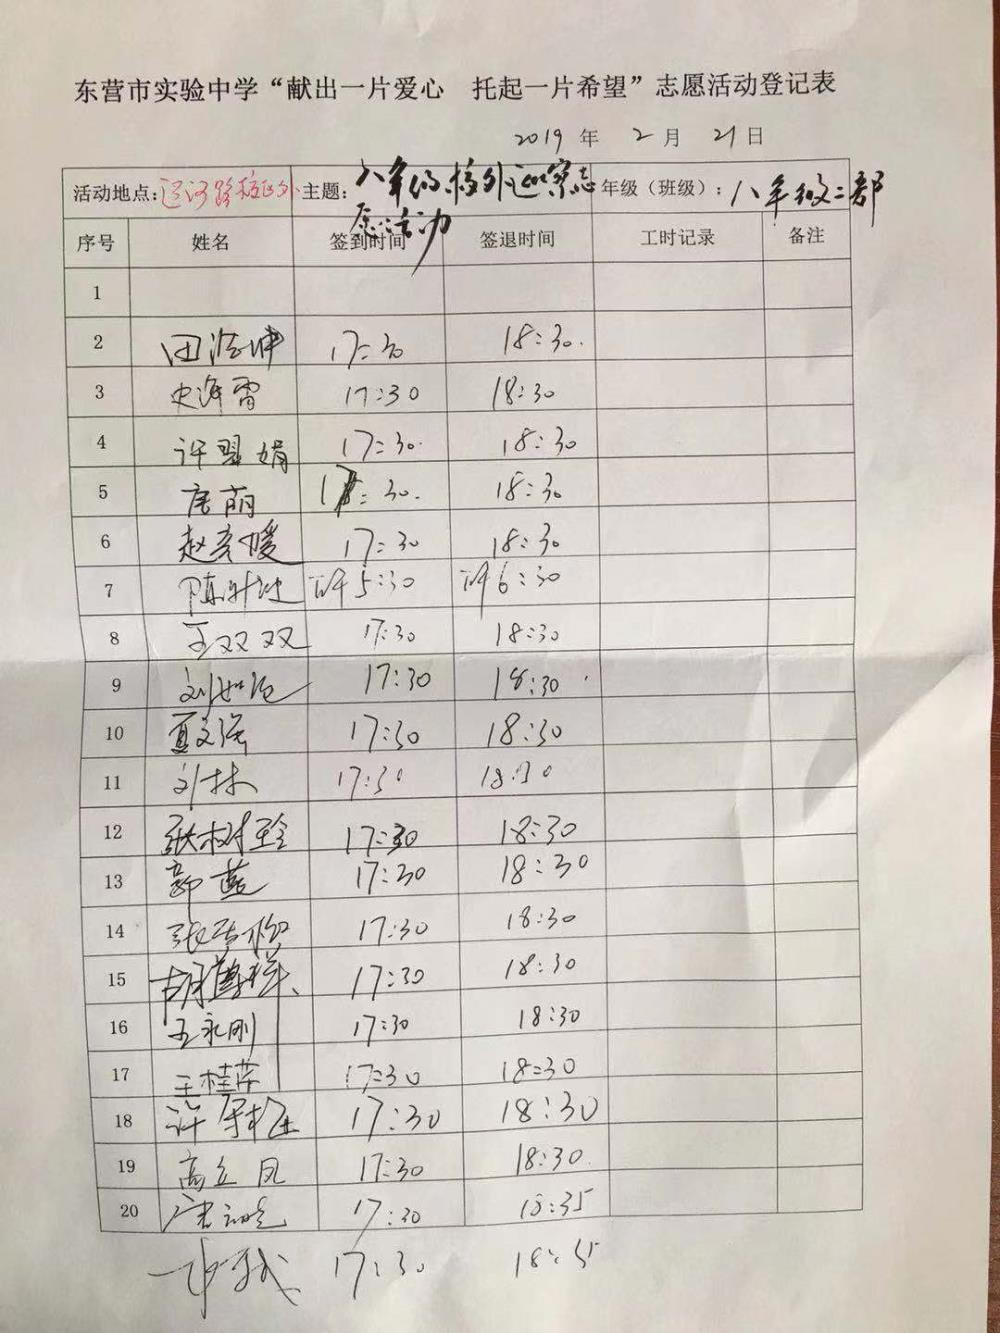 东营市实验中学“献出一片爱心 托起一片希望”志愿活动登记表
2019 年 2 月 21 日
活动地点: 运河路校区外 主题: 八年级校外巡察志愿活动 年级（班级）: 八年级二部
序号 姓名 签到时间 签退时间 工时记录 备注
1
2 田 17:30 18:30
3 史海霄 17:30 18:30
4 许 娟 17:30 18:30
5 唐萌 17:30 18:30
6 赵 媛 17:30 18:30
7 陈 下午5:30 下午6:30
8 王双双 17:30 18:30
9 刘如 17:30 18:30
10 夏文强 17:30 18:30
11 刘林 17:30 18:30
12 张树玲 17:30 18:30
13 郭燕 17:30 18:30
14 张 17:30 18:30
15 胡尊祥 17:30 18:30
16 王永刚 17:30 18:30
17 王桂萍 17:30 18:30
18 许 17:30 18:30
19 高立凤 17:30 18:30
20 17:30 18:35
17:30 18:35